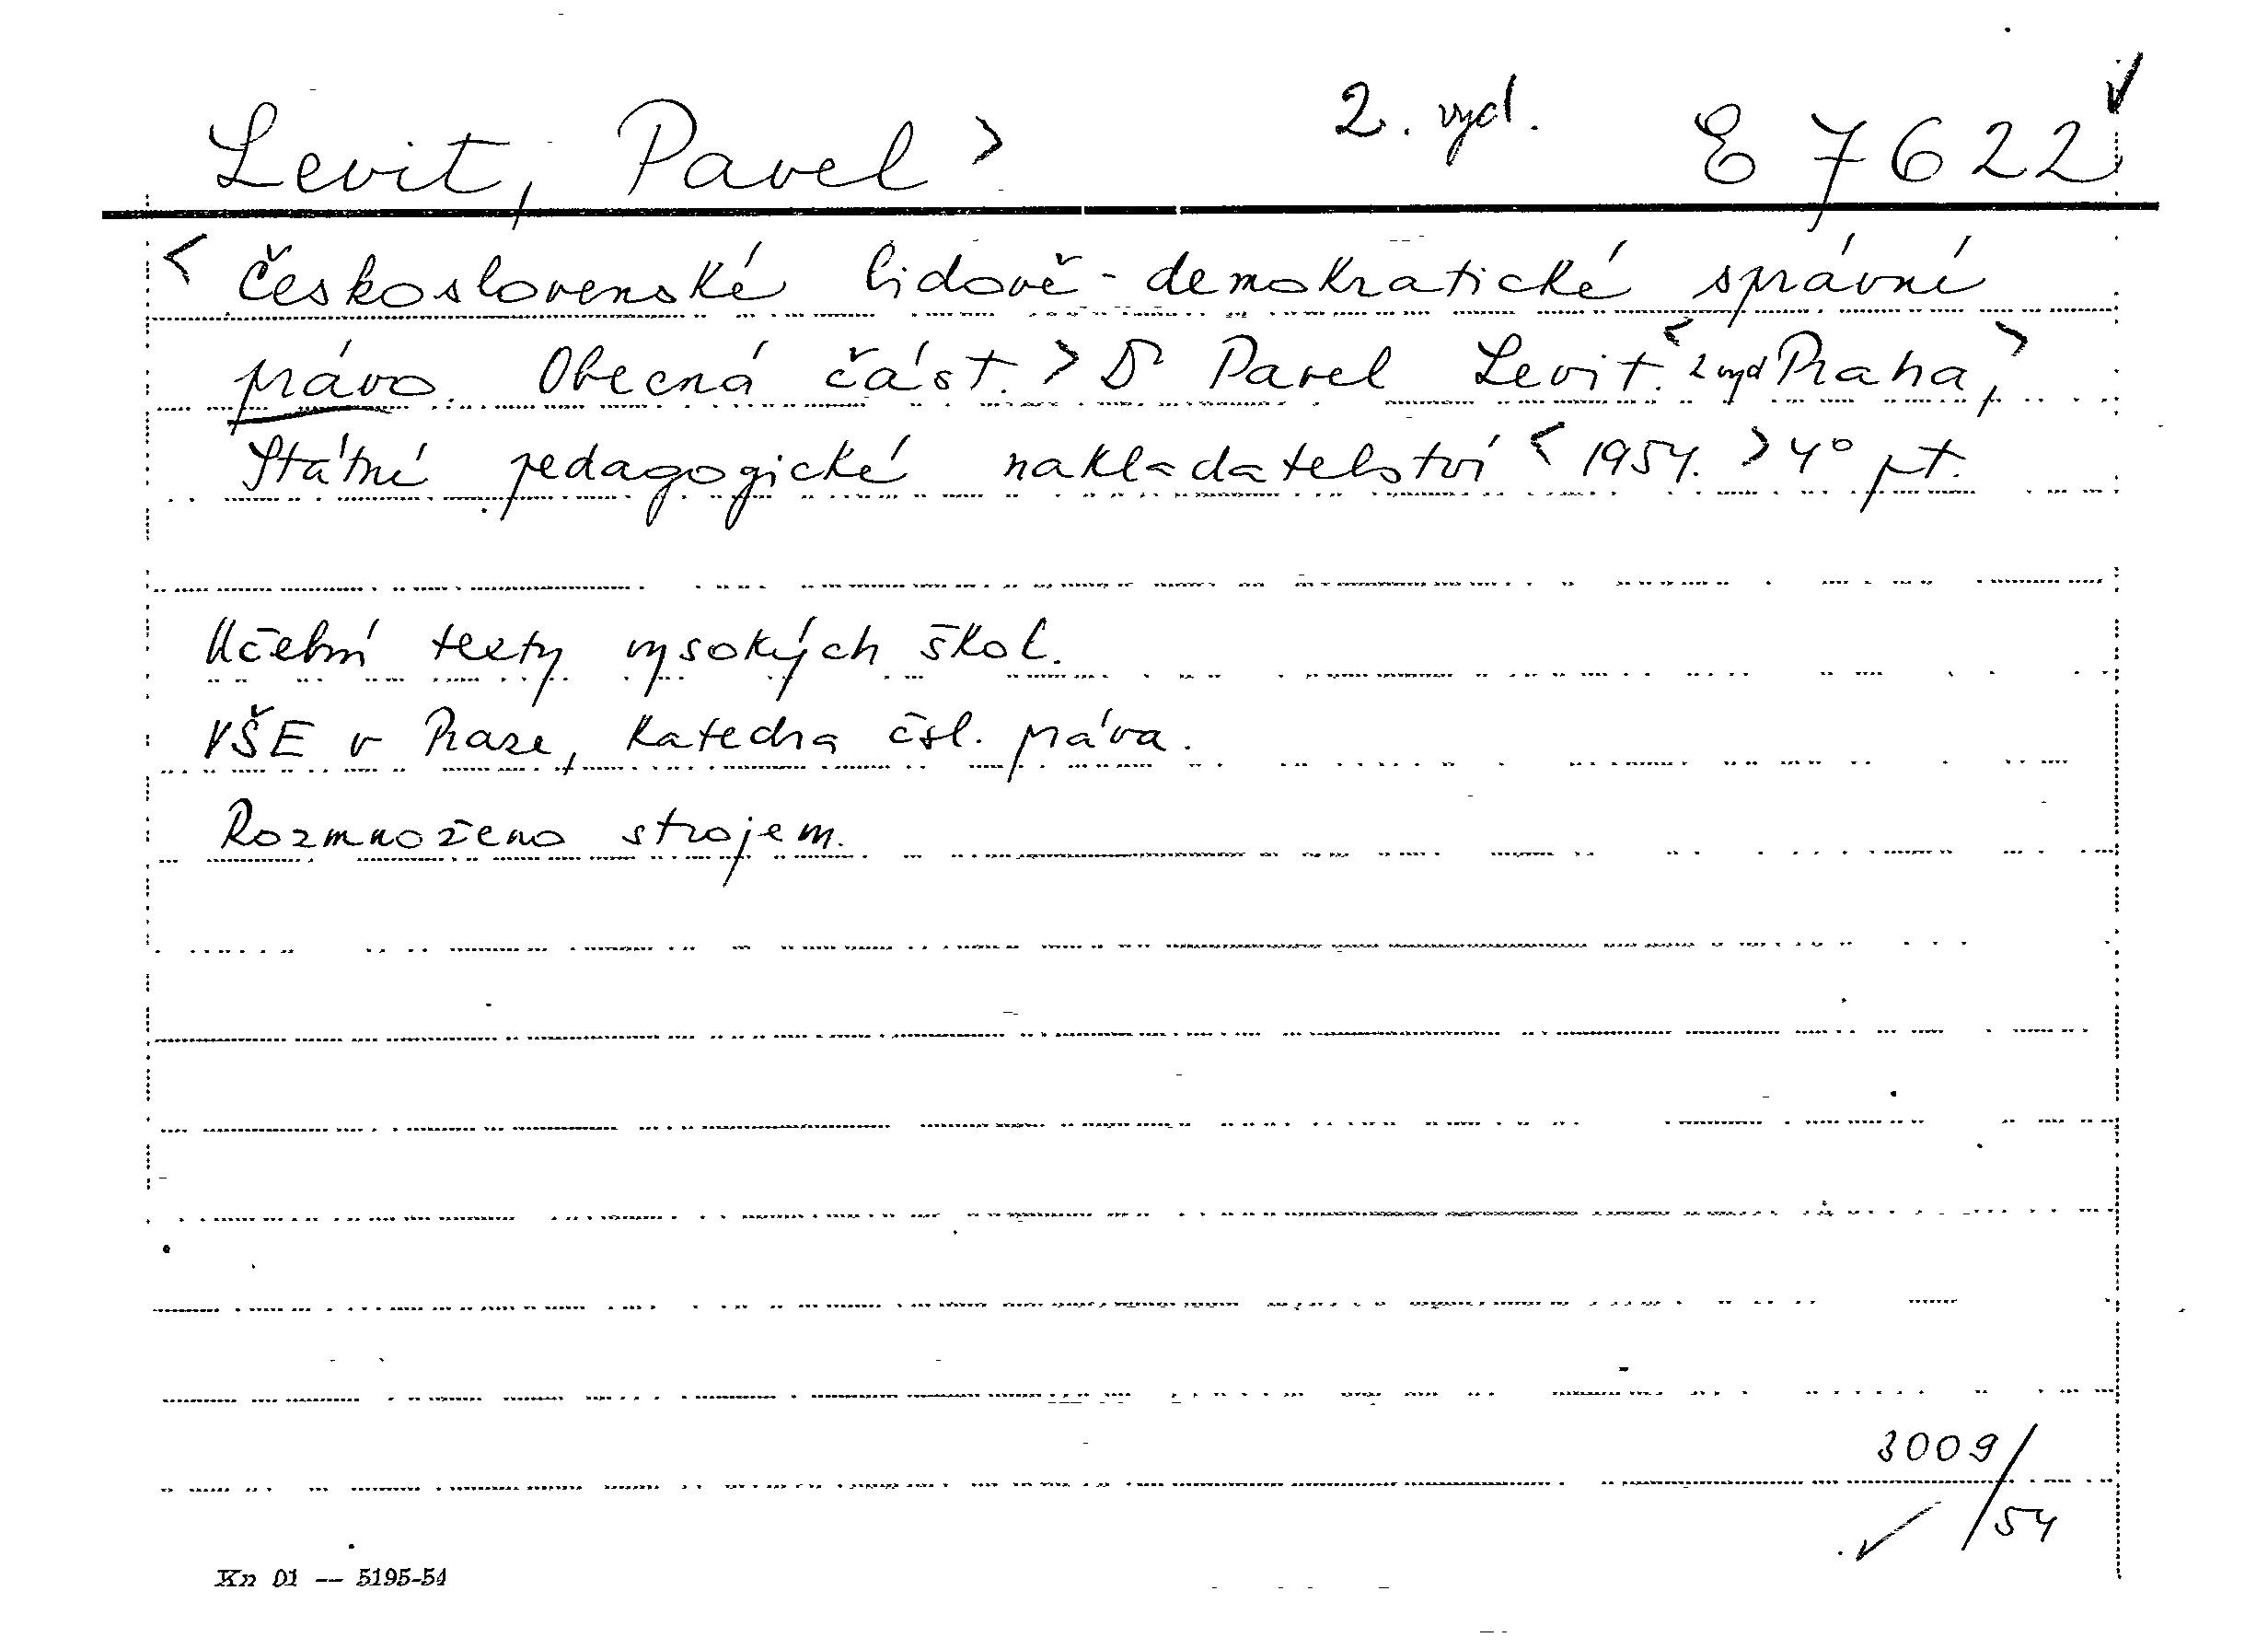 Levit, Pavel > 2. vyd. E 7622
< Československé lidově-demokratické správní
právo. Obecná část. > Dr Pavel Levit. < 2 vyd Praha, >
Státní pedagogické nakladatelství < 1954. > 4° pt.
Učební texty vysokých škol.
VŠE v Praze, Katedra čsl. práva.
Rozmnoženo strojem.
3009/
54
Kn 01 — 5195-54